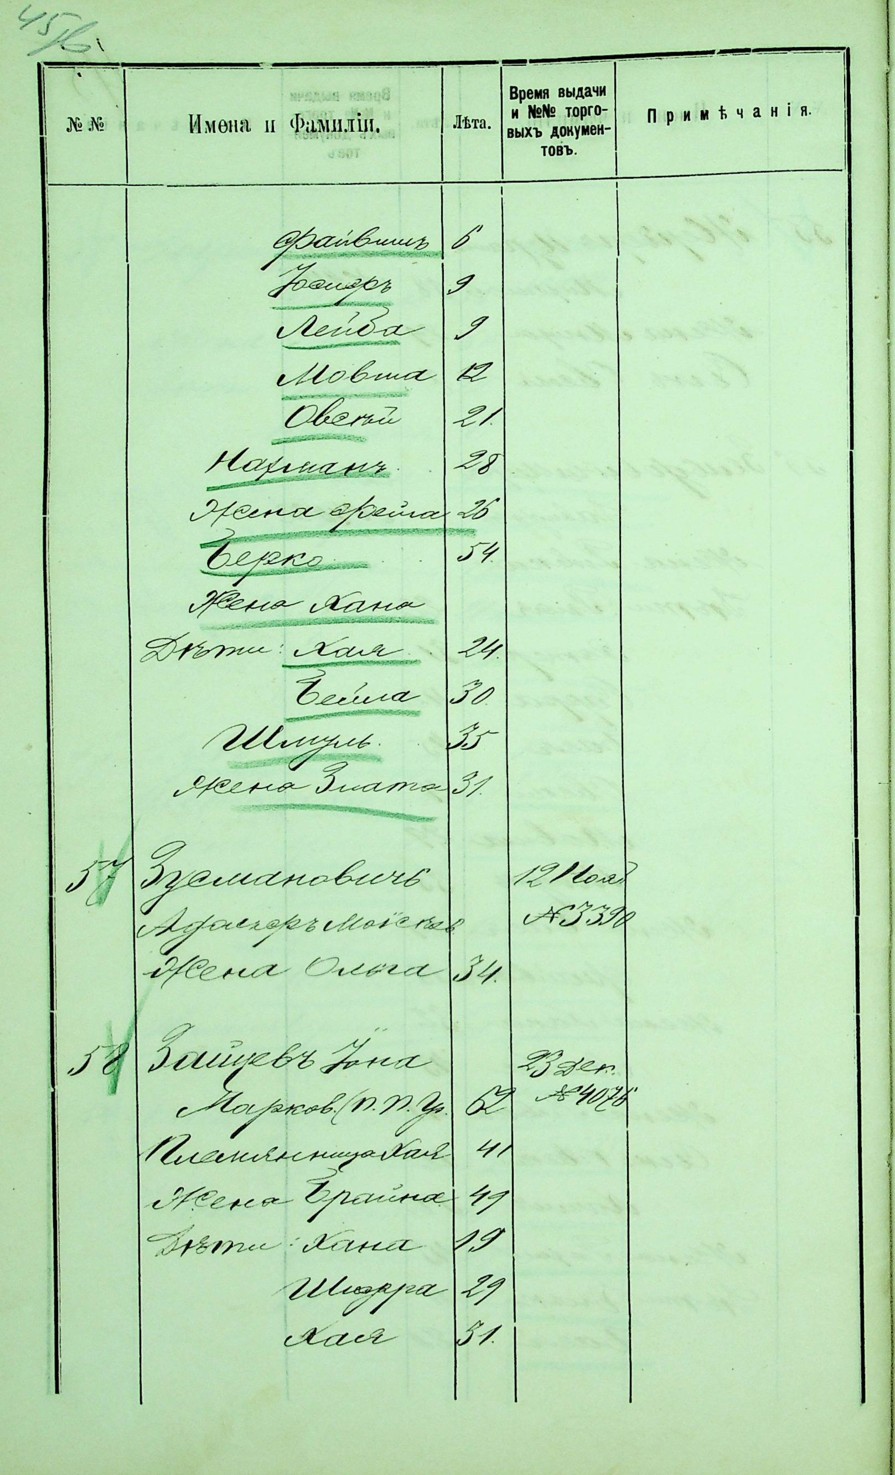 45
№ №
Имена и Фамиліи.
Лѣта.
Время выдачи
и №№ торго-
выхъ докумен-
товъ.
Примѣчанія.
Файвишъ 6
9
Лейба 9
Мовша 12
Овсѣй 21.
Нахманъ 28
Жена Фейга 26
Берко 54.
Жена Хана
Дѣти: Хая 24.
Бейла 30.
Шмуль 35
Жена Злата 31.
57 Зусмановичъ 12 Нояб
Моисеев № 3390
Жена Ольга 34.
58 Зайцевъ Іона 23 Дек.
Марков. (п. п. Гр. 62 № 4076
Племянница Хая 41
Жена Брайна 49
Дѣти: Хана 19
Шифра 29
Хая 31.